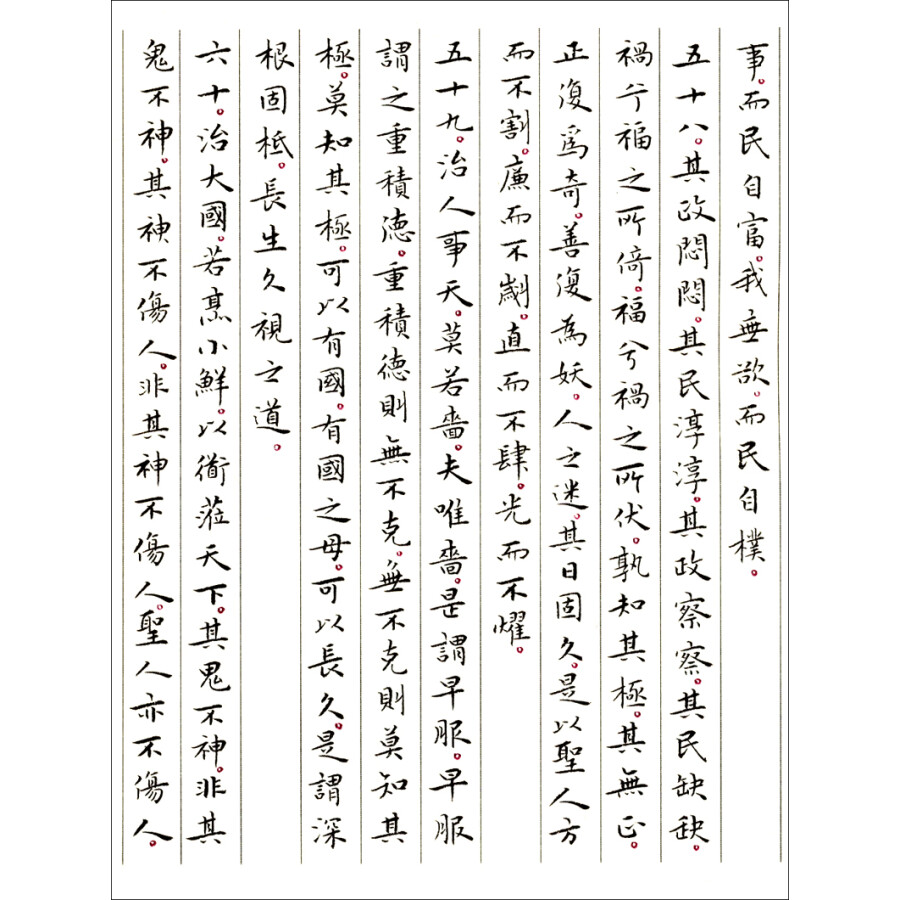 事。而民自富。我無欲。而民自樸。
五十八。其政悶悶。其民淳淳。其政察察。其民缺缺。
禍兮福之所倚。福兮禍之所伏。孰知其極。其無正。
正復爲奇。善復為妖。人之迷。其日固久。是以聖人方
而不割。廉而不劌。直而不肆。光而不燿。
五十九。治人事天。莫若嗇。夫唯嗇。是謂早服。早服
謂之重積德。重積德則無不克。無不克則莫知其
極。莫知其極。可以有國。有國之母。可以長久。是謂深
根固柢。長生久視之道。
六十。治大國。若烹小鮮。以衜蒞天下。其鬼不神。非其
鬼不神。其神不傷人。非其神不傷人。聖人亦不傷人。